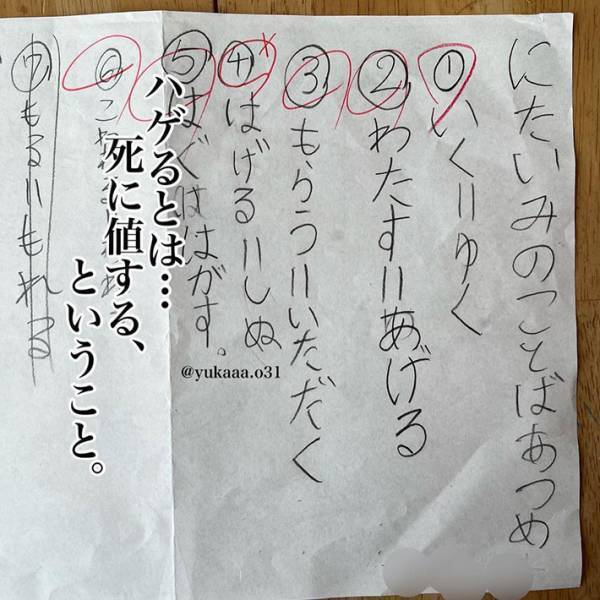 にたいみのことばあつめ
①いく=ゆく
②わたす=あげる
③もらう=いただく
④はげる=しぬ
⑤はぐははがす。
⑥こ
⑦もる=もれる
ハゲるとは…
死に値する、
ということ。
@yukaaa.o31